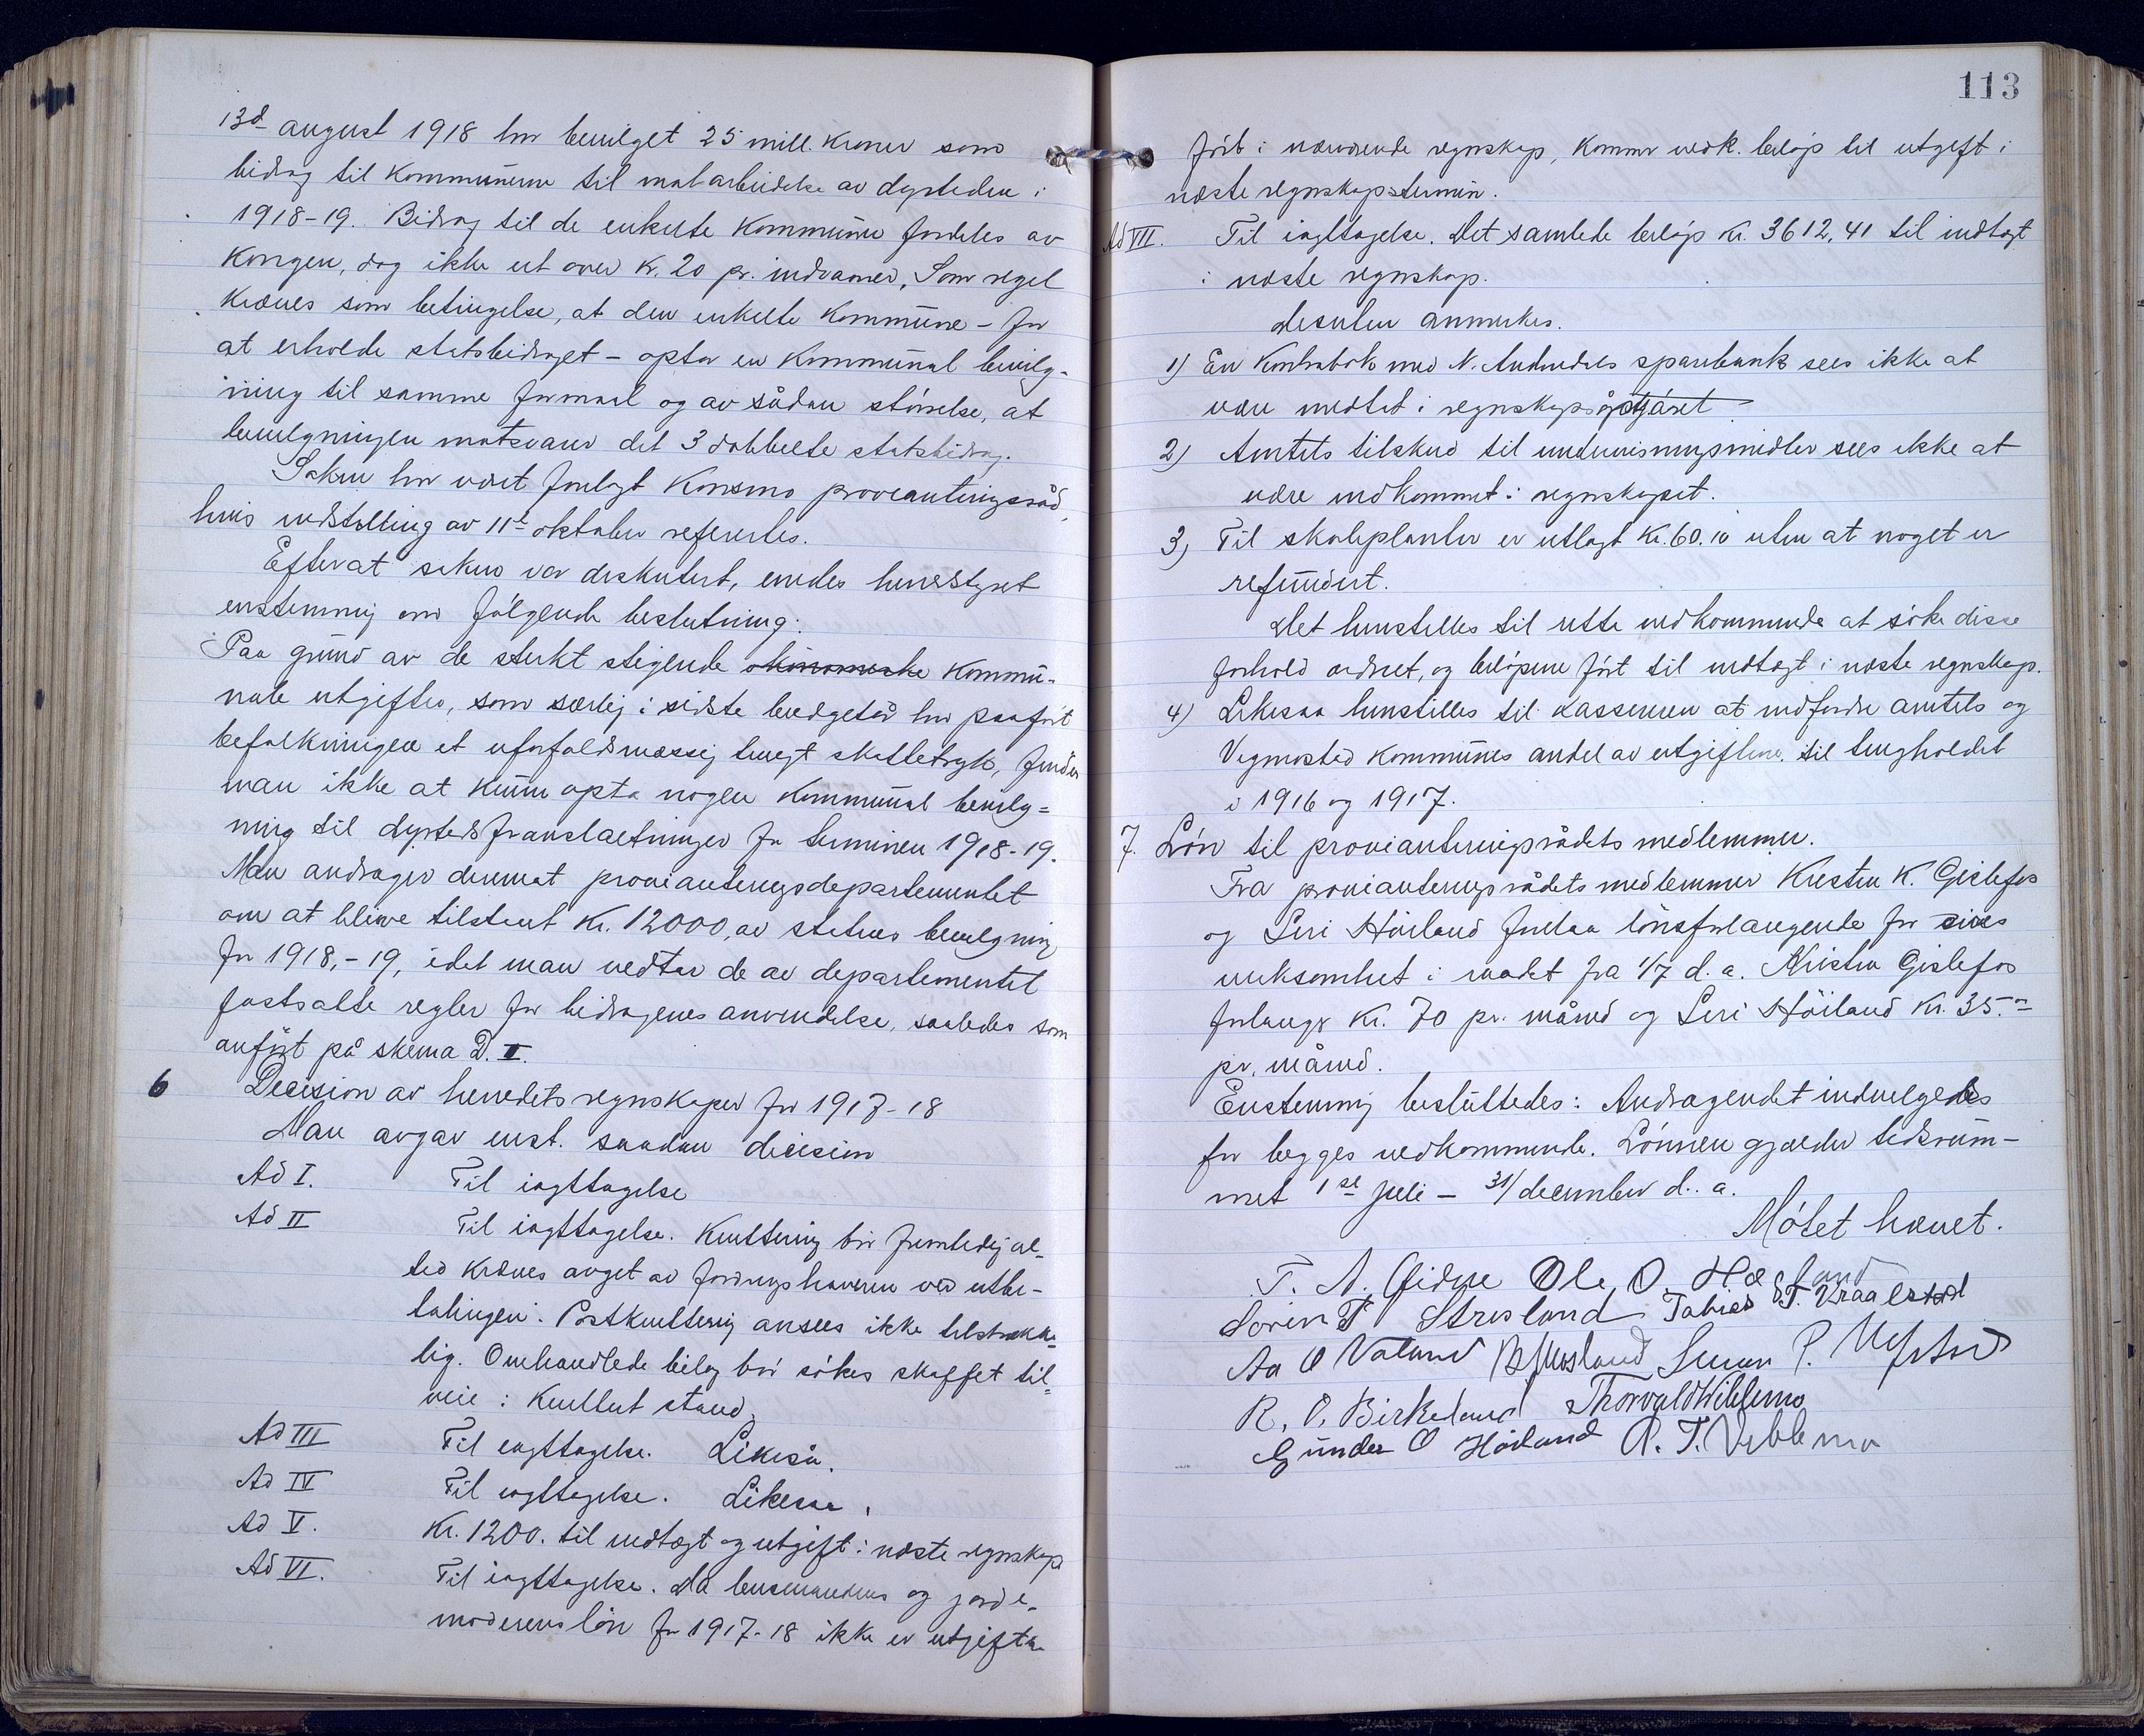 13d august 1918 har bevilget 25 mill. kroner som
bidrag til kommunerne til motarbeidelse av dyrtiden i
1918-19. Bidrag til de enkelte kommuner fordeles av
Kongen, dog ikke ut over kr. 20 pr. indvaaner. Som regel
kræves som betingelse, at den enkelte kommune - for
at erholde statsbidraget - optar en kommunal bevilg-
ning til samme formaal og av sådan störrelse, at
bevilgningen motsvarer det 3 dobbelte statsbidrag.
Saken har været forelagt Konsmo provianteringsråd,
hvis indstilling av 11te oktober refereertes.
Efterat saken var diskutert, enedes herredstyret
enstemmig om fölgende beslutning:
Paa grund av de sterkt stigende ökonomiske kommu-
nale utgifter, som særlig i sidste budgetår har paafört
befolkningen et uforholdsmæssig tungt skattetryk, finder
man ikke at kunne opta nogen kommunal bevilg-
ning til dyrtidsforanstaltninger for terminen 1918-19.
Man andrager derimot provianteringsdepartementet
om at blive tilstaat kr. 12000, av statens bevilgning
for 1918,-19, idet man vedtar de av departementet
fastsatte regler for bidragenes anvendelse, saaledes som
anfört på skema D. II.
6 Decision av herredets regnskaper for 1917-18
Man avgav enst. saadan decision
Ad I. Til iagttagelse
Ad II Til iagttagelse. Kvittering bör fremtidig al-
tid kræves avget av fordringshaveren ved utbe-
talingen. Postkvittering ansees ikke tilstrække-
lig. Omhandlede bilag bör sökes skaffet til-
veie i kvittert stand.
Ad III Til iagttagelse. Likeså.
Ad IV Til iagttagelse. Likesaa.
Ad V. Kr. 1200. til indtægt og utgift i næste regnskap
Ad VI. Til iagttagelse. Da lensmandens og jorde-
moderens lön for 1917-18 ikke er utgifts-
113
fört i nærværende regnskap, kommer vedk. belöp til utgift i
næste regnskapstermin.
Ad VII. Til iagttagelse. Det samlede belöp kr. 3612,41 til indtægt
i næste regnskap.
Desuten anmerkes.
1) En kontrabok med N. Audnedals sparebank sees ikke at
være medtat i regnskapsopgjöret
2) Amtets tilskud til undervisningsmidler sees ikke at
være indkommet i regnskapet.
3) Til skoleplanter er utlagt kr. 60.10 uten at noget er
refundert.
Det henstilles til rette vedkommende at söke disse
forhold ordnet, og belöpene fört til indtægt i næste regnskap.
4) Likesaa henstilles til kassereren at indfordre amtets og
Vigmostad kommunes andel av utgifterne til tingholdet
i 1916 og 1917.
7. Lön til provianteringsrådets medlemmer.
Fra provianteringsrådets medlemmer Kristen K. Gislefos
og Siri Höiland forelaa lönsforlangende for sines
virksomhet i raadet fra 1/7 d.a. Kristen Gislefos
forlanger kr. 70 pr. måned og Siri Höiland kr. 35.-
pr. måned.
Enstemmig besluttedes: Andragendet indvilgedes
for begges vedkommende. Lönnen gjælder tidsrum-
met 1ste juli - 31/december d. a.
Mötet hævet.
T. A. Eidse Ole O. Hæ land
Sören T Strisland Tobias T. Vraalstad
Aa O Valand
R. O. Birkeland Thorvald Viblemo
Gunder O Höiland R. T. Viblemo